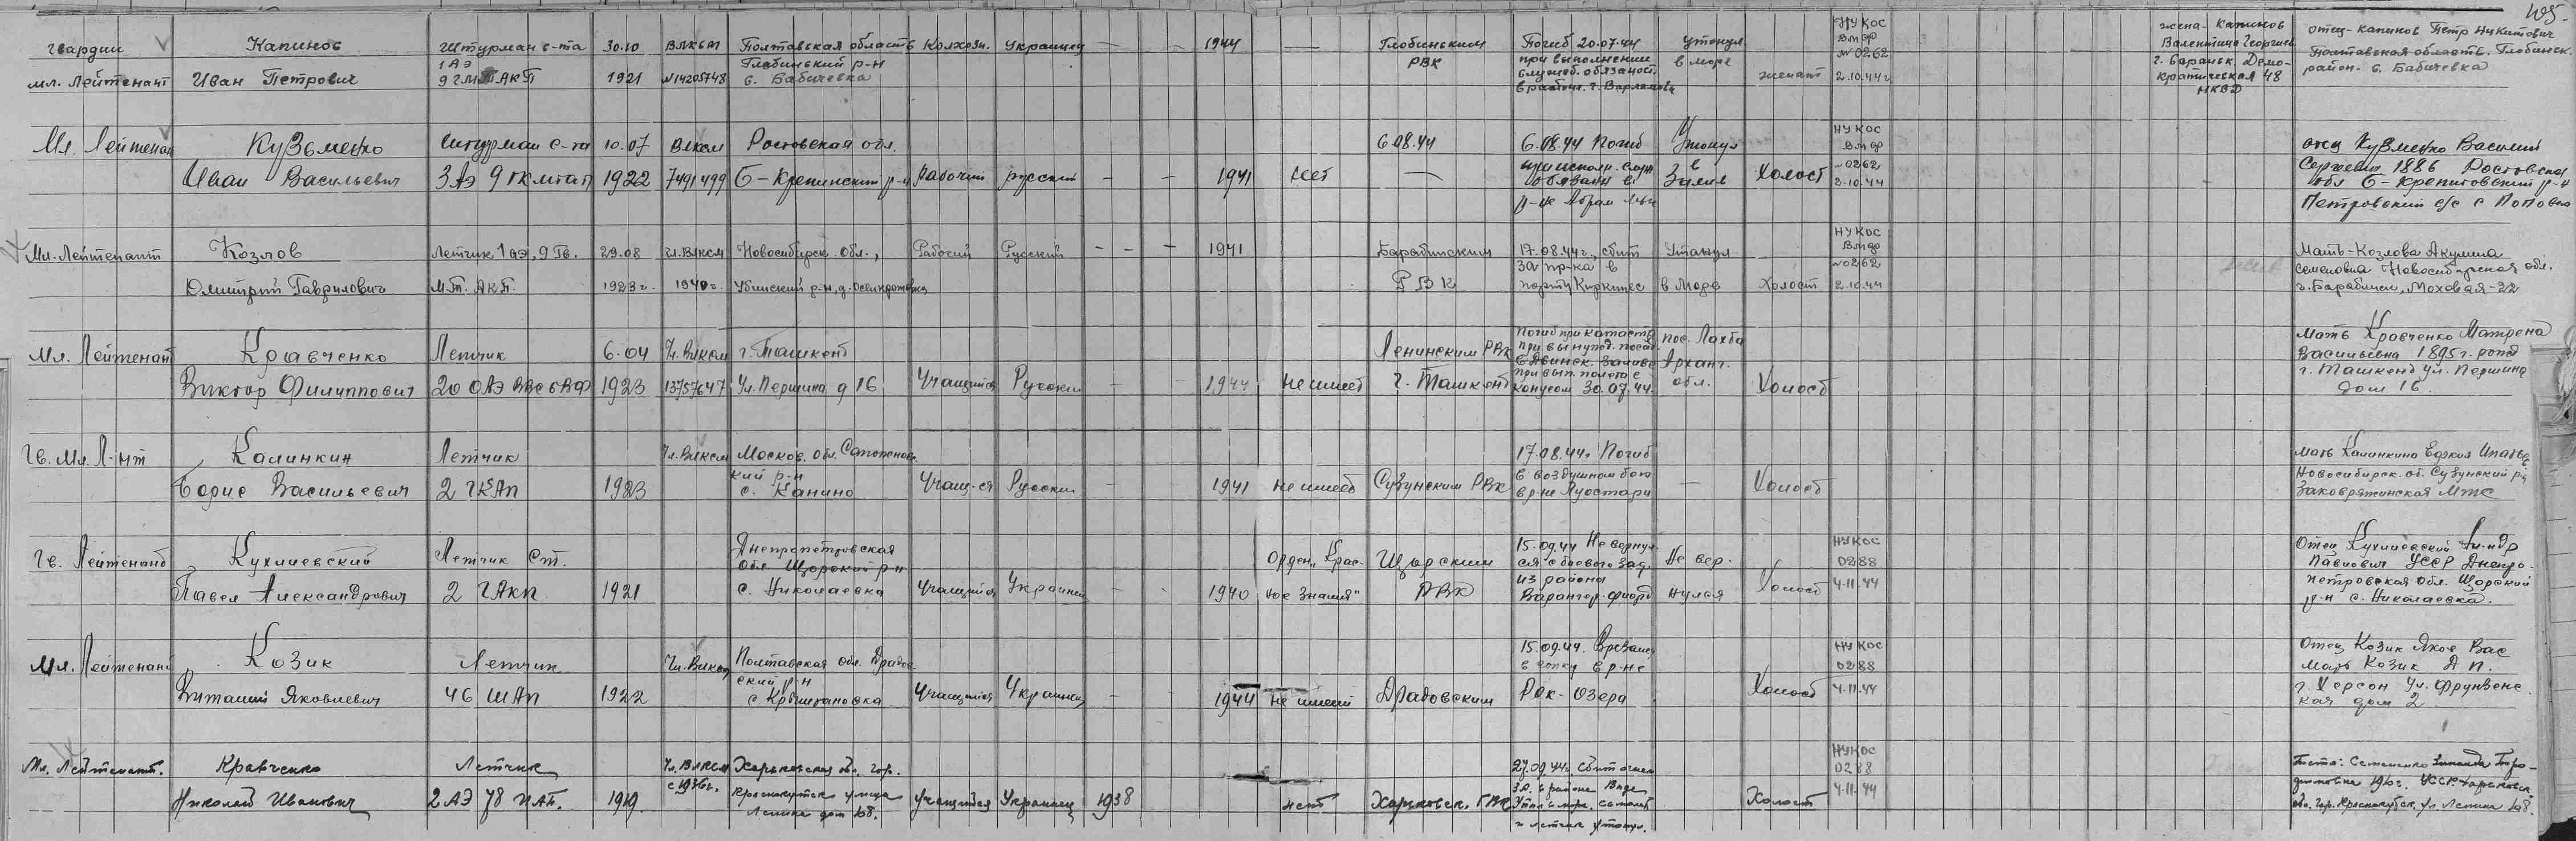 405
Гвардии мл. Лейтенант
Капинов Иван Петрович
Штурман с-та 1АЭ 9 ГМТАКП
30.10 1921
ВЛКСМ N14205748
Полтавская область Глобинский р-н с. Бабичевка
Колхозн.
Украинец
— —
1944
—
Глобинским РВК
Погиб 20.07.44 при выполнении служеб. обязаной. в районе
утонул в море
женат
НУ КОС ВМФ №0262 2.10.44г.
жена - Капинова Валентина Георгиев. г. Саранск. Демократическая 48 НКВД
отец - Капинов Петр Никитович Полтавская область. Глобинск. район - с. Бабичевка
Мл. Лейтенан
Кузьменко Иван Васильевич
Штурман с-та 3 АЭ 9 ГКМТАП
10.07 1922
ВЛКСМ 7491499
Ростовская обл. Б-Крепинский р-н
Рабочий
русский
— —
1941
нет
6.08.44 —
6.08.44 Погиб при исполн. обязан в р-не
Утонул в
Холост
НУ КОС ВМФ №0262 2.10.44
отец Кузменко Василий Сергеевич 1886 Ростовская обл Б-Крепитовский р-н Петровский с/с с Поповка
Мл. Лейтенант
Козлов Дмитрий Гаврилович
Летчик 1 аэ, 9 Гв. М.Т. АКП.
29.08 1923г.
чл. ВЛКСМ 1940г.
Новосибирск. Обл., Убинский р-н, д.
Рабочий
Русский
— — —
1941
Барабинским РВК
17.08.44г., сбит ЗА пр-ка в порту Киркинес
Утонул в Море
Холост
НУ КОС ВМФ №0262 2.10.44
Мать - Козлова Акулина Семеновна Новосибирская обл. г. Барабинск, Моховая-22
Мл. Лейтенант
Кравченко Виктор Филиппович
Летчик 20 ОАЭ ВВС БВФ
6.04 1923
Чл. ВЛКСМ 13757647
г. Ташкент Ул. Першина д 16
Учащийся
Русский
— —
1944
Не имеет
Ленинским РВК г. Ташкент
Погиб при катастр. при вынужд. посад. в Двинск. заливе при вып. полета с конусом 30.07.44.
пос. Лахта Арханг. обл.
Холост
Мать Кравченко Матрена Васильевна 1895г. рожд г. Ташкент ул. Першина дом 16
Гв. Мл. Л-нт
Калинкин Борис Васильевич
Летчик 2 ГКАП
1923
Чл. ВЛКСМ
Москов. обл. Сапожковский р-н с. Канино
Учащ-ся
Русский
— —
1941
Не имеет
Сузунским РВК
17.08.44г Погиб в воздушном бою в р-не Луостари
—
Холост
мать Калинкина Новосибирск. об. Сузунский р-н Заковряжинская МТС
Гв. Лейтенант
Кухлиевский Павел Александрович
Летчик Ст. 2 ГАКП
1921
Днепропетровская обл Щорский р-н с. Николаевка
Учащийся
Украинец
— —
1940
Орден „Красное Знамя"
Щорским РВК
15.09.44 Не вернулся с боевого зад. из района Варангер-фиорд
Не вернулся
Холост
НУКОС 0288 4.11.44
Отец Кухлиевский Ал-ндр Павлович УССР Днепропетровская обл. Щорский р-н с. Николаевка.
Мл. Лейтенант
Козик Виталий Яковлевич
Летчик 46 ШАП
1922
Чл. ВЛКСМ
Полтавская обл. Драбовский р-н
Учащийся
Украинец
— —
1944
Не имеет
Драбовским
15.09.44. Врезался в сопку в р-не Рок-Озера
Холост
НУ КОС 0288 4.11.44
Отец Козик Яков Вас мать Козик А П. г. Херсон Ул. Фрунзенская дом 2
Мл. Лейтенант.
Кравченко Николай Иванович
Летчик 2 АЭ 78 ИАП.
1919.
Чл. ВЛКСМ с 1936г.
Харьковская об. гор. Краснокутск улица Ленина дом 108.
учащийся
Украинец
1938
нет
Харьковск. ГВК
27.09.44г. сбит огнем З.А. в районе самолет и летчик утонул.
Холост
НУКОС 0288 4.11.44
Тетя: Семененко Зинаида 1910г. УССР Харьковск. об. гор. Краснокутск. ул. Ленина 108.